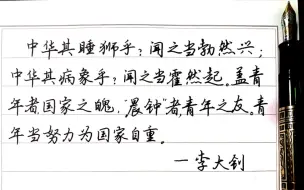 中华其睡狮乎？闻之当勃然兴；
中华其病象乎？闻之当霍然起。盖青
年者国家之魂，“晨钟”者青年之友。青
年当努力为国家自重。
—李大钊